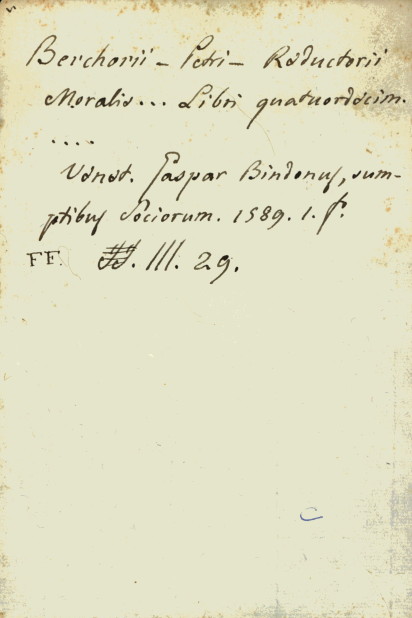 Berchorii - Petri - Reductorii
Moralis... Libri quatuordecim.
....
Venet. Gaspar Bindonus, sum-
ptibus Sociorum. 1589. 1. f.
FF. III. 29.